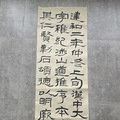 建和二年仲冬上旬漢中大
字稚紀涉歷山道推序本原
其仁賢勒石頌德以明厥